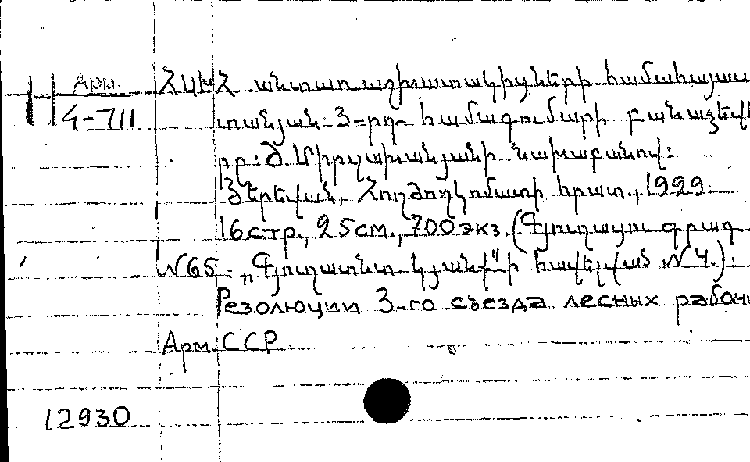 Арм.
4-711
ՀՍԽՀ անտառաշխատակիցների համահայաս
տանյան 3-րդ համագումարի բանաձևե
րը: Ծ. Միրզախանյանի նախաբանով:
Յերևան, Հողժողկոմատի հրատ., 1929.
16стр., 25см., 700экз. (Գյուղատն. գրադ.
№65. „Գյուղատնտ. կյանք"ի հավելված №4.):
Резолюции 3-го съезда лесных рабоч
Арм. ССР
12930